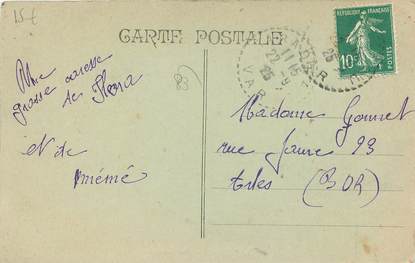 15€
CARTE POSTALE
REPUBLIQUE FRANÇAISE
10c
POSTES
VAR
83
Une
grosse caresse
de Flora
Et de
mémé
Madame
rue Jaure 93
Arles (BDR)